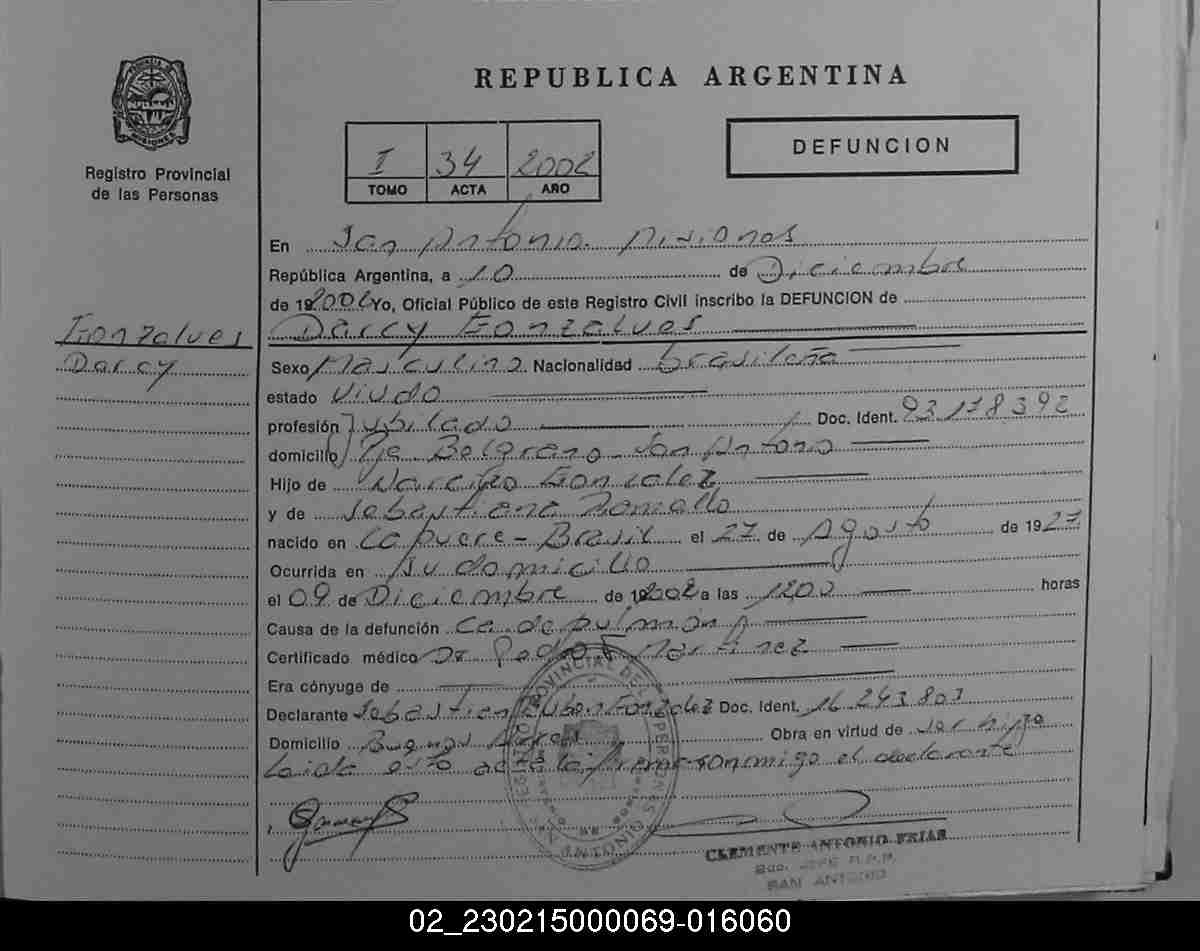 REPUBLICA ARGENTINA
PROVINCIA DE MISIONES
Registro Provincial
de las Personas
I 34 2002
TOMO ACTA AÑO
DEFUNCION
En San Antonio. Misiones
República Argentina, a 10 de Diciembre
de 192002 Yo, Oficial Público de este Registro Civil inscribo la DEFUNCION de
Gonzalves
Darcy
Darcy Gonzalves
Sexo Masculino. Nacionalidad brasileña
estado Viudo
profesión Jubilado Doc. Ident. 93178392
domicilio Pje Belgrano San Antonio
Hijo de Narcizo Gonzalez
y de Sebastiana
nacido en - Brasil el 27 de Agosto de 1927
Ocurrida en su domicilio
el 09 de Diciembre de 192002 a las 1200 horas
Causa de la defunción Ca. de pulmón
Certificado médico Dr Pedro Martinez
Era cónyuge de
Declarante Sebastian Ruben Gonzalez Doc. Ident. 16 243 803
Domicilio Buenos Aires Obra en virtud de ser hijo
Leida esta acta la firma conmigo el declarante
CLEMENTE ANTONIO FRIAS
SAN ANTONIO
02_230215000069-016060